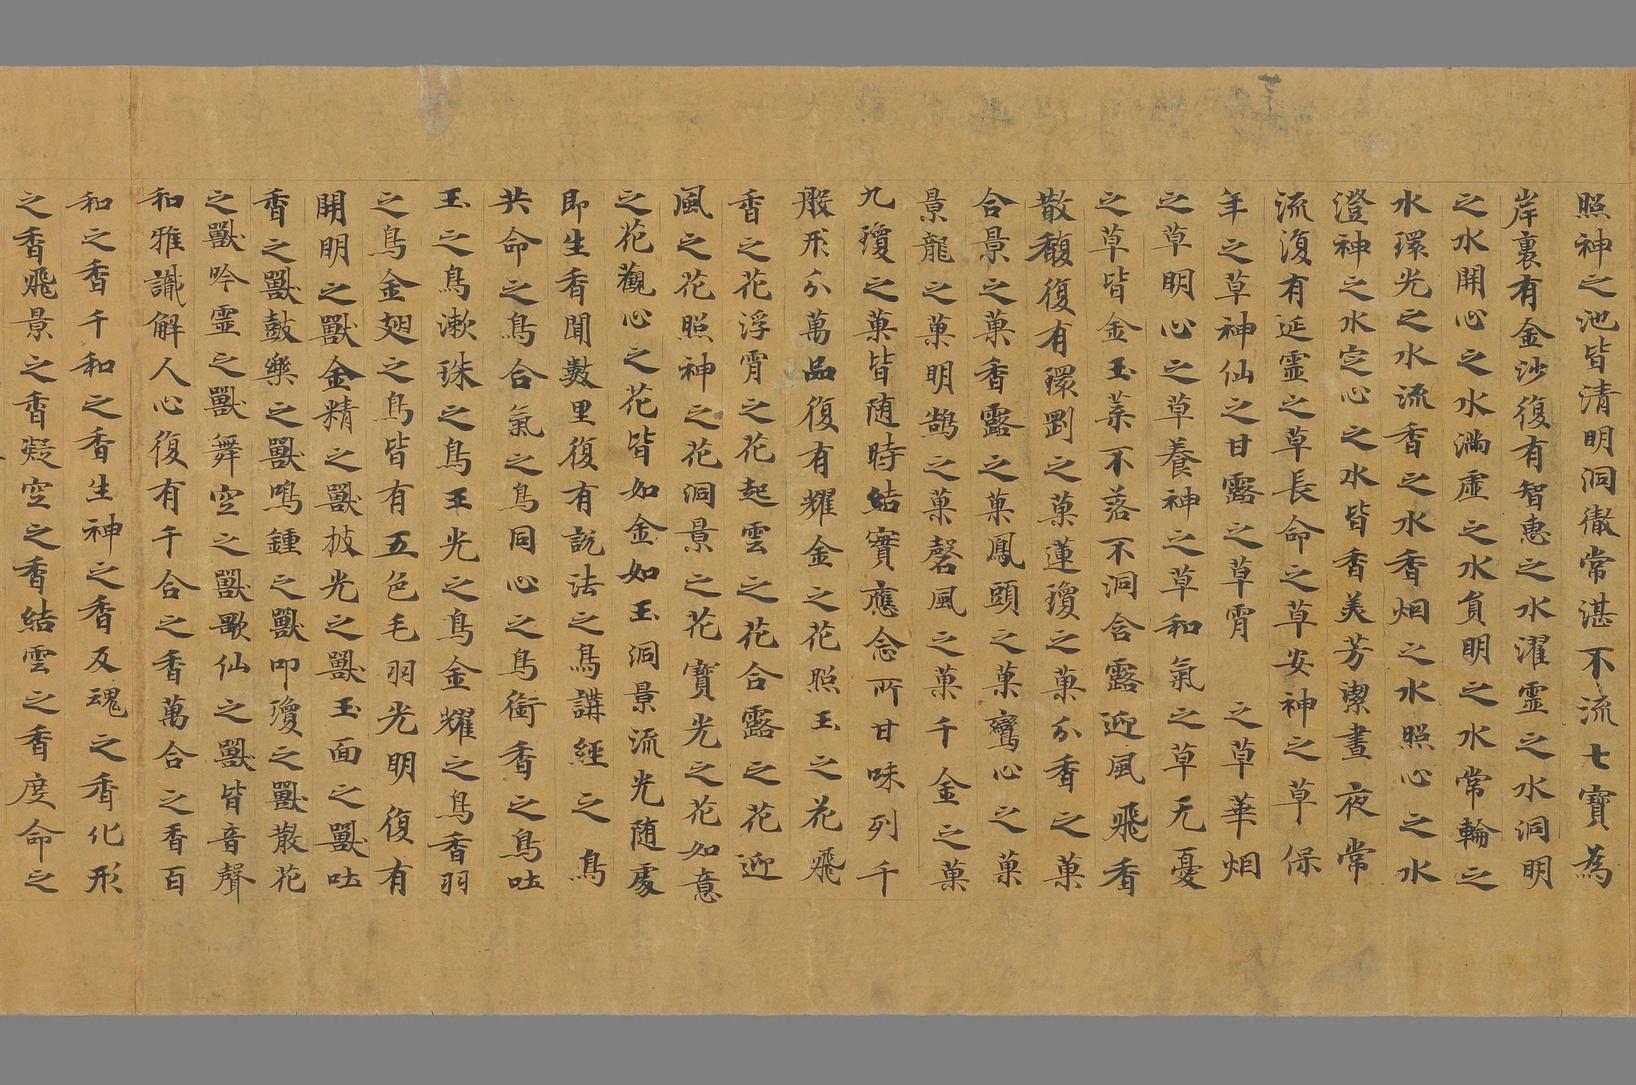 照神之池皆清明洞徹常湛不流七寶為
岸裏有金沙復有智惠之水濯靈之水洞明
之水開心之水滿虛之水負明之水常輪之
水環光之水流香之水香烟之水照心之水
澄神之水定心之水皆香美芳潔晝夜常
流復有延靈之草長命之草安神之草保
年之草神仙之甘露之草霄之草華烟
之草明心之草養神之草和氣之草无憂
之草皆金玉葉不落不洞含露迎風飛香
散馥復有環剛之菓蓮瓊之菓分香之菓
合景之菓香露之菓鳳頭之菓鸞心之菓
景龍之菓明鵠之菓磬風之菓千金之菓
九瓊之菓皆随時結實應念所甘味列千
般形分萬品復有耀金之花照玉之花飛
香之花浮霄之花起雲之花合露之花迎
風之花照神之花洞景之花寶光之花如意
之花觀心之花皆如金如玉洞景流光随處
即生香聞數里復有説法之鳥講經之鳥
共命之鳥合氣之鳥同心之鳥銜香之鳥吐
玉之鳥漱珠之鳥玉光之鳥金耀之鳥香羽
之鳥金翅之鳥皆有五色毛羽光明復有
開明之獸金精之獸披光之獸玉面之獸吐
香之獸鼓樂之獸鳴鍾之獸叩瓊之獸散花
之獸吟靈之獸舞空之獸歌仙之獸皆音聲
和雅識解人心復有千合之香萬合之香百
和之香千和之香生神之香反魂之香化形
之香飛景之香凝空之香結雲之香度命之